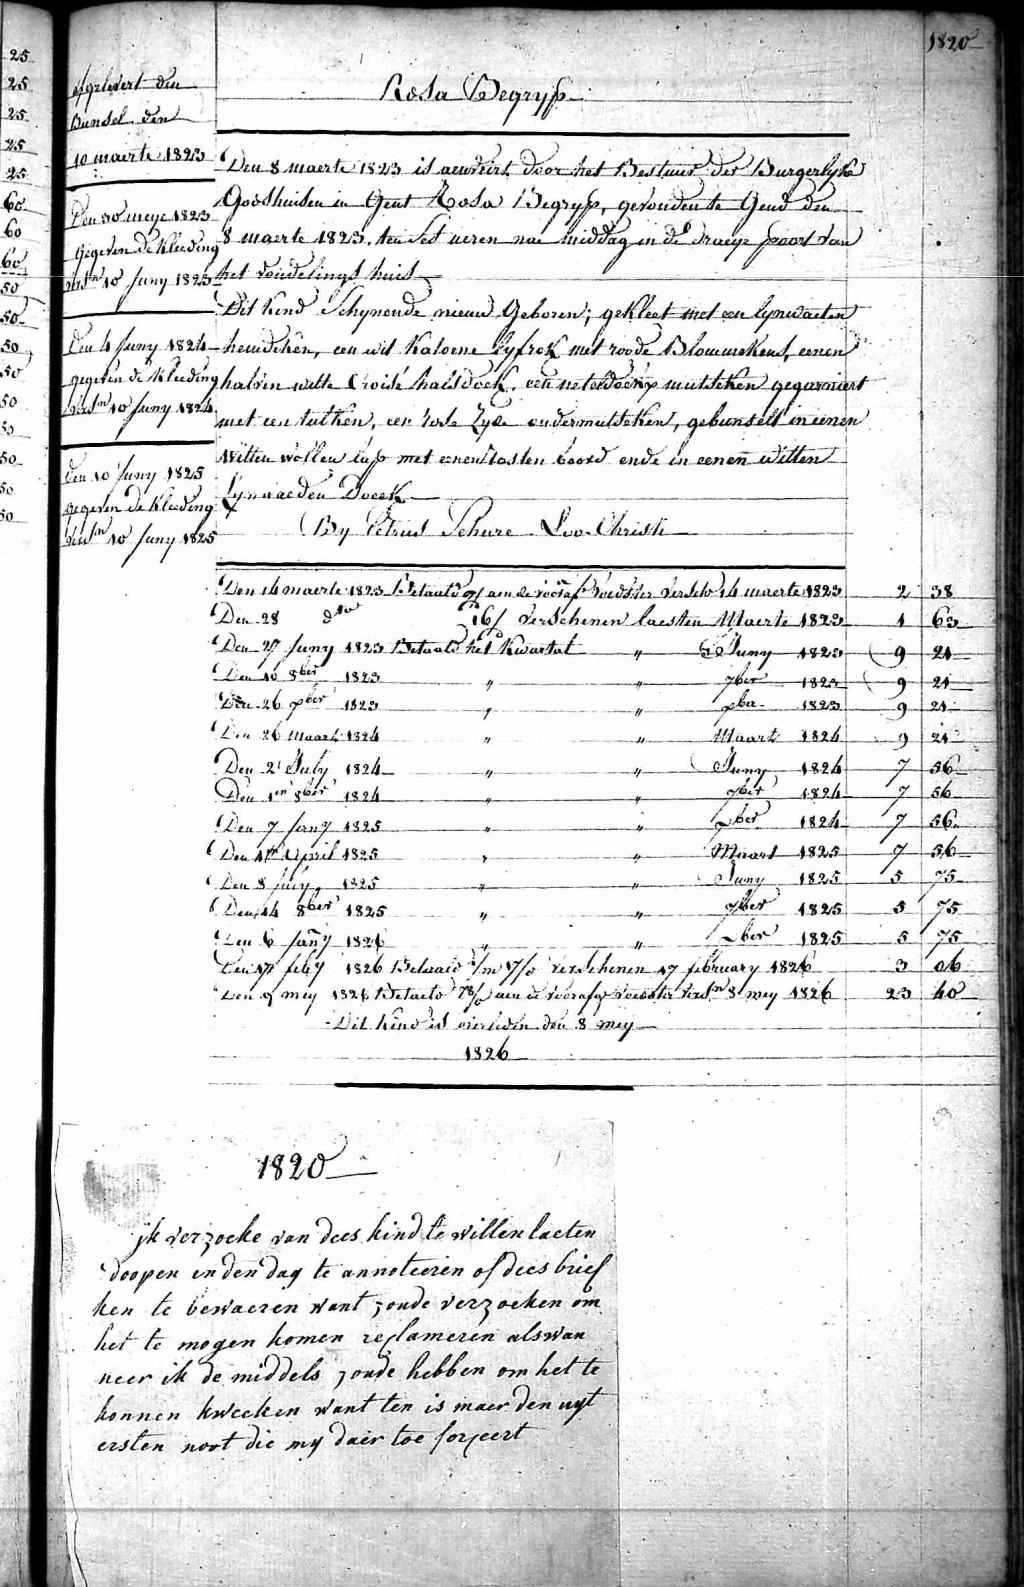 1820
Rosa Begryp
afgelevert den
Bunsel den
10 maerte 1823
Den 30 meye 1823
Gegeven de kleeding
versn 10 Juny 1823
Den 4 Juny 1824
gegeven de kleeding
versn 10 Juny 1824
Den 10 Juny 1825
gegeven de kleeding
versn 10 Juny 1825
25
25
25
25
25
60
60
60
50
50
50
50
50
50
50
50
50
Den 8 maerte 1823 is aenveirt door het Bestuur der Burgerlyke
Godshuisen in Gent Rosa Begryp, gevonden te Gend den
8 maerte 1823. ten ses ueren nae middag in de Draeye poort van
het vondelings huis
Dit kind Schynende nieuw Geboren; gekleet met een lynwaeten
hemdeken, een wit katoene lyfrok met roode Blommekens, eenen
halven witte Croisé halsdoek, een neteldoekx mutsken gegarniert
met een tulken, een rode Zyde ondermutseken, gebunselt in eenen
witten wollen lap met eenen rosten boord ende in eenen witten
Lynwaeden Doeck
By Petrus Schure Loo-Christi
Den 14 maerte 1823 Betaald aen de vooraf Voedster versch 14 maerte 1823 2 38
Den 28 dto 16/ verschenen laesten Maerte 1823 1 63
Den 27 Juny 1823 Betaald het kwartal " Juny 1823 9 21
Den 10 8ber 1823 " " 7ber 1823 9 21
Den 26 xber 1823 " " xber 1823 9 21
Den 26 maart 1824 " " Maart 1824 9 21
Den 2 July 1824 " " Juny 1824 7 56
Den 1en 8ber 1824 " " 7ber 1824 7 56
Den 7 Jany 1825 " " xber 1824 7 56
Den April 1825 " " Maart 1825 7 56
Den 8 July 1825 " " Juny 1825 5 75
Den 14 8ber 1825 " " 7ber 1825 5 75
Den 6 Jany 1826 " " xber 1825 5 75
Den 17 feby 1826 Betaald verschenen 17 february 1826 3 06
Den 9 mey 1826 Betaeld 78/0 aen de voorafg Voedster versn 8 mey 1826 23 40
Dit kind is overleden den 8 mey
1826
1820
jk verzoeke van dees kind te willen laeten
doopen en den dag te annoteeren of dees brief
ken te bewaeren want zoude verzoeken om
het te mogen komen reclameren als wan
neer ik de middels zoude hebben om het te
konnen kweeken want ten is maer den uyt
ersten noot die my daer toe forceert